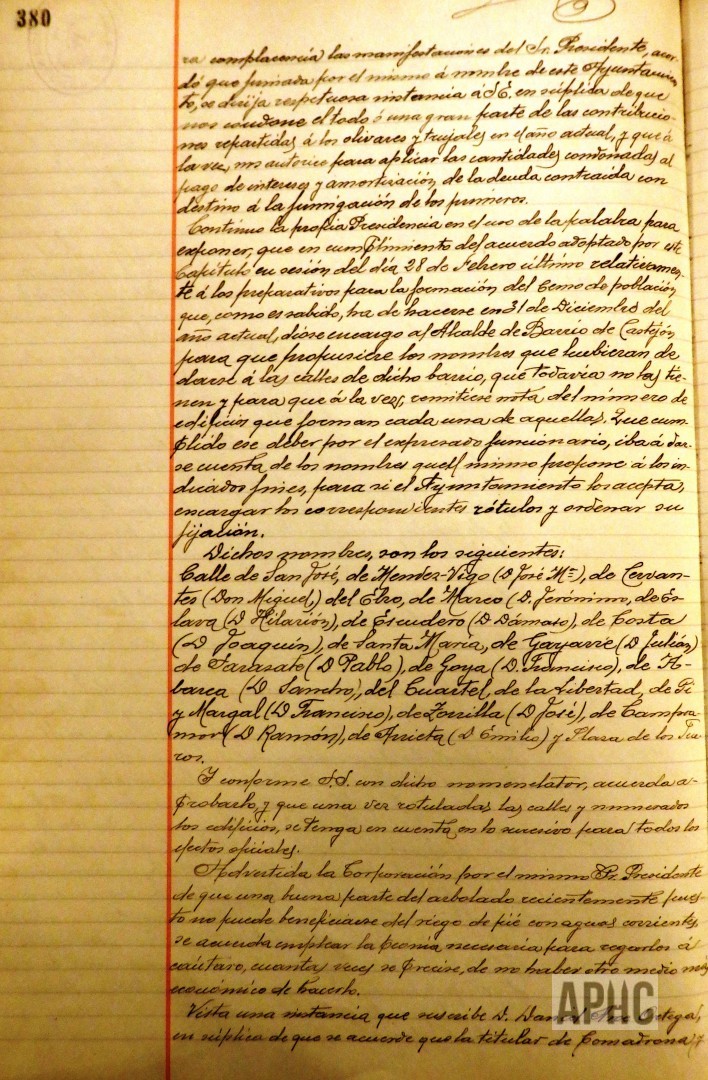 380
ra complacencia las manifestaciones del Sr. Presidente, acor-
dó que firmada por el mismo á nombre de este Ayuntamien
to, se dirija respetuosa instancia á S.E. en súplida de que
nos condone el todo ó una gran parte de las contribucio-
nes repartidas á los olivares y trujales en el año actual, y que á
la vez, nos autorice para aplicar las cantidades condonadas al
pago de intereses y amortización, de la deuda contraida con
destino á la fumigación de los primeros.
Continuó la propia Presidencia en el uso de la palabra para
exponer, que en cumplimiento del acuerdo adoptado por este
Capítulo en sesión del día 28 de Febrero último relativamen-
te á los preparativos para la formación del Censo de población
que, como es sabido, ha de hacerse en 31 de Diciembre del
año actual, dióse encargo al Alcalde de Barrio de Castejón
para que propusiere los nombres que hubieran de
darse á las calles de dicho barrio, que todavía no las tie-
nen y para que á la vez, remitiese nota del número de
edificios que forman cada una de aquellas. Que cum-
plido ese deber por el expresado funcionario, iba á dar-
se cuenta de los nombres que el mismo propone á los in-
dicados fines, para si el Ayuntamiento los acepta,
encargar los correspondientes rótulos y ordenar su
fijación.
Dichos nombres, son los siguientes:
Calle de San José, de Mendez-Vigo (D José Mª), de Cervan-
tes (Don Miguel,) del Ebro, de Marco (D. Jerónimo, de Es-
lava (D Hilarión), de Escudero (D Dámaso), de Costa
(D Joaquín), de Santa María, de Gayarre (D Julián)
de Sarasate (D Pablo), de Goya (D. Francisco), de A-
barca (D Sancho), del Cuartel, de la Libertad, de Pi
y Margal (D Francisco), de Zorrilla (D José), de Campoa-
mor (D Ramón), de Arrieta (D Emilio) y Plaza de los Fue-
ros.
Y conforme S.S. con dicho nomenclator, acuerda a-
probarlo, y que una vez rotuladas las calles y numerados
los edificios, se tenga en cuenta en lo sucesivo para todos los
efectos oficiales.
Advertida la Corporación por el mismo Sr. Presidente
de que una buena parte del arbolado recientemente pues-
to no puede beneficiarse del riego de pié con aguas corrientes,
se acuerda emplear la peonía necesaria para regarlos á
cántaro, cuantas veces se precise, de no haber otro medio más
económico de hacerlo.
Vista una instancia que suscribe D. Daniel Ortega,
en súplica de que se acuerde que la titular de Comadrona
APHC